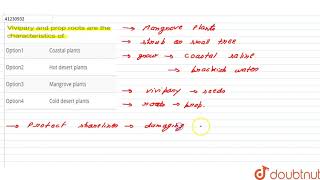 41230932
Vivipary and prop roots are the
characteristics of
Option1 Coastal plants
Option2 Hot desert plants
Option3 Mangrove plants
Option4 Cold desert plants
→ Mangrove Plants
→ shrub or small tree
→ grow → coastal saline
→ brackish water
→ vivipary → seeds
→ roots → prop.
→ Protect shorelines → damaging
doubtnut